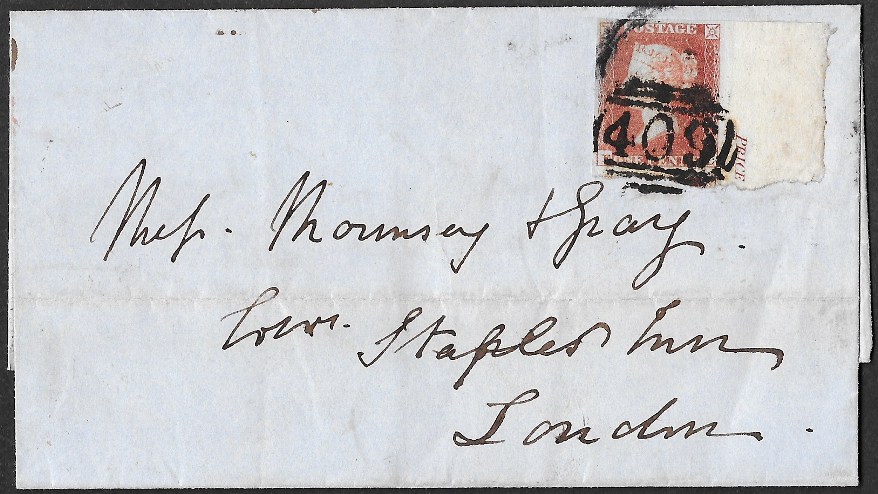 POSTAGE
409
PRICE
Messrs. Mounsey & Gray.
Staples Inn
London.